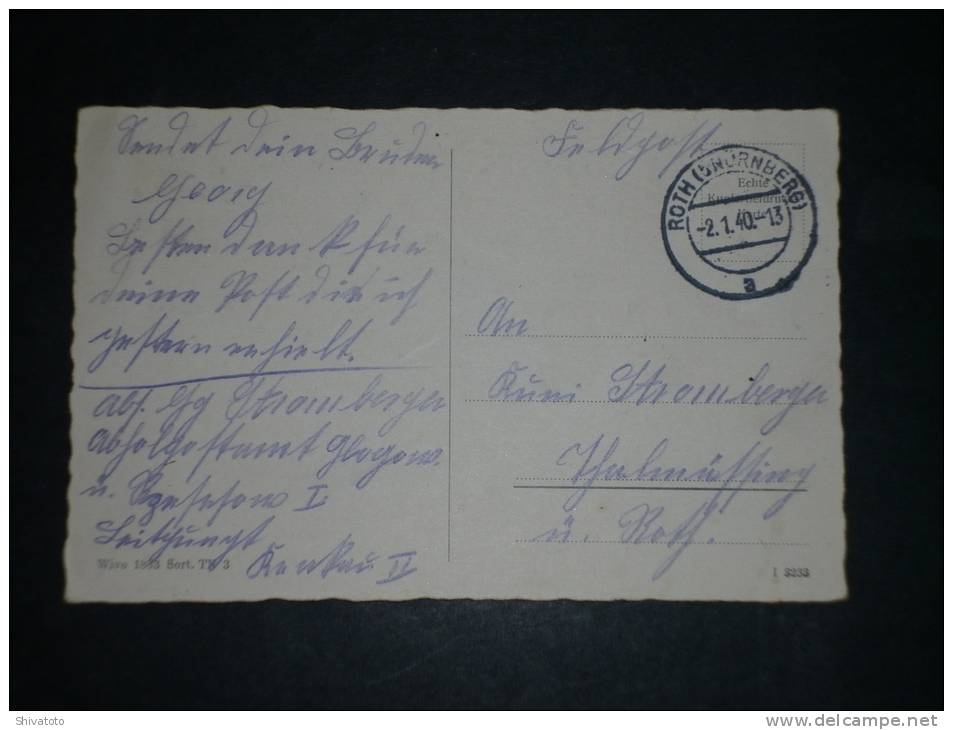 Sendet dein Bruder
Georg
Besten dank für
deine Post die ich
gestern erhielt.
abs. Gg Stromberger
Abholpostamt Glogow
u. Rzeschow I
Leitpunkt
Krakau II
Wiro 1883 Sort. Th 3
Feldpost
ROTH (b NÜRNBERG)
-2.1.40.-13
a
Echte
An
Kuni Stromberger
Thalmässing
ü. Roth.
I 3233
Shivatoto
www.delcampe.net